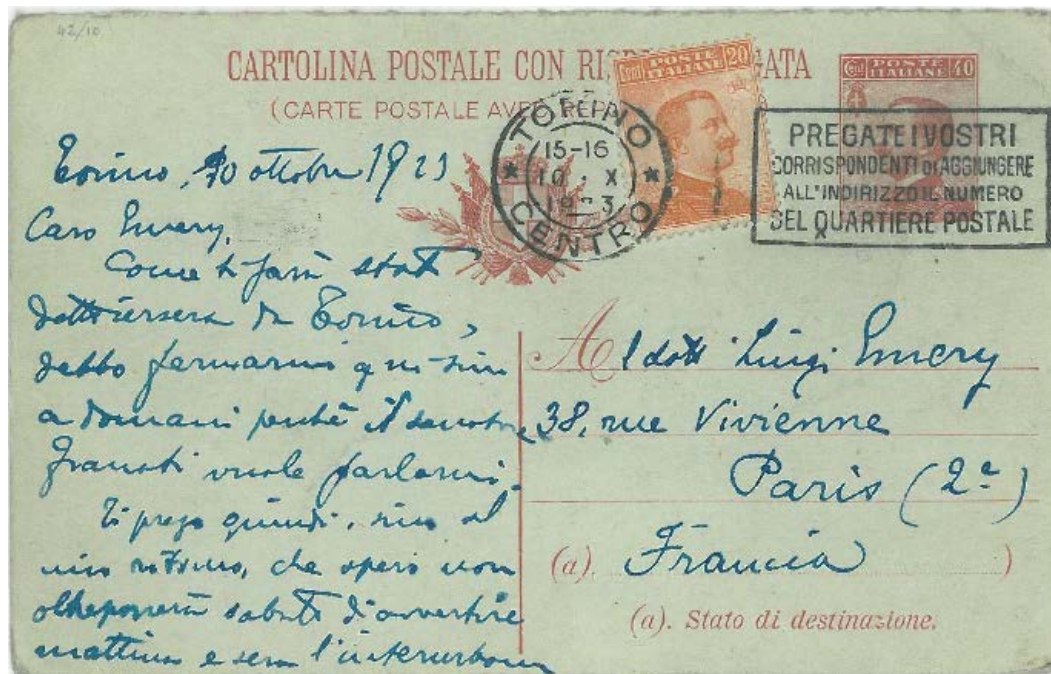 42/10
CARTOLINA POSTALE CON RIS GATA
(CARTE POSTALE AVEC REP
POSTE ITALIANE 20
Cent
POSTE ITALIANE 40
TORINO
15-16
10 . X
1923
CENTRO
PREGATE I VOSTRI
CORRISPONDENTI DI AGGIUNGERE
ALL'INDIRIZZO IL NUMERO
DEL QUARTIERE POSTALE
Torino, 10 ottobre 1923
Caro Emery,
Come ti sarà stato
detto iersera da Torino,
debbo fermarmi qui sino
a domani perché il senatore
Frassati vuole parlarmi.
Ti prego quindi, sino al
mio ritorno, che spero non
oltrepasserà sabato di avvertire
mattina e sera l'interurbana
Al dott Luigi Emery
38, rue Vivienne
Paris (2e)
(a). Francia )
(a). Stato di destinazione.